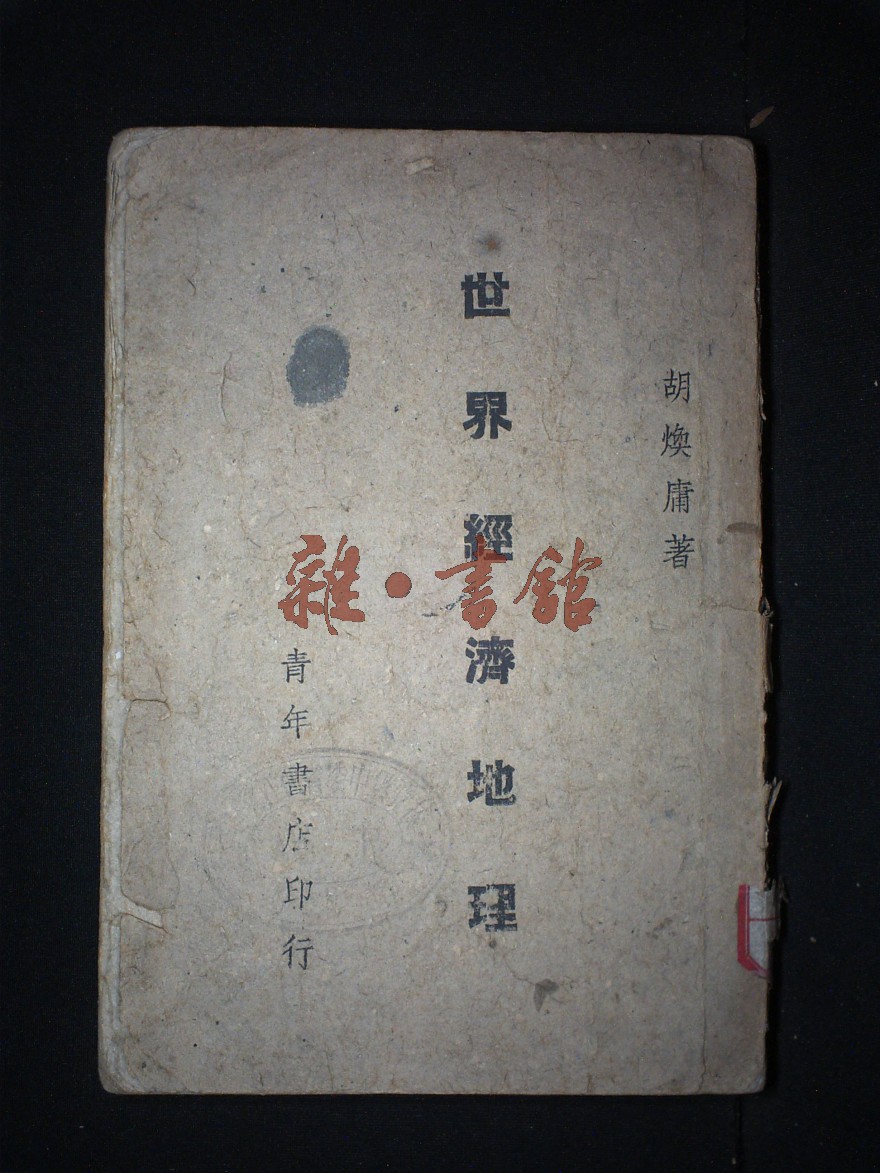 胡煥庸著
世界經濟地理
青年書店印行
雜·書館